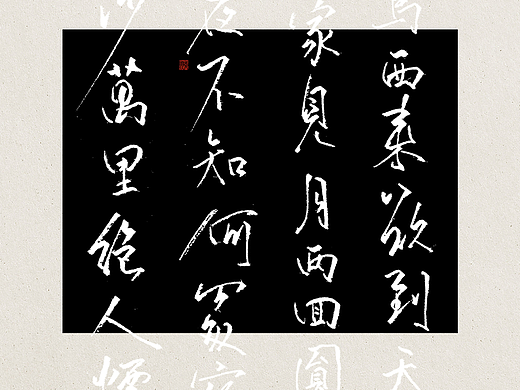 馬西来欲到天
家見月两回圓
夜不知何處宿
沙萬里絕人煙